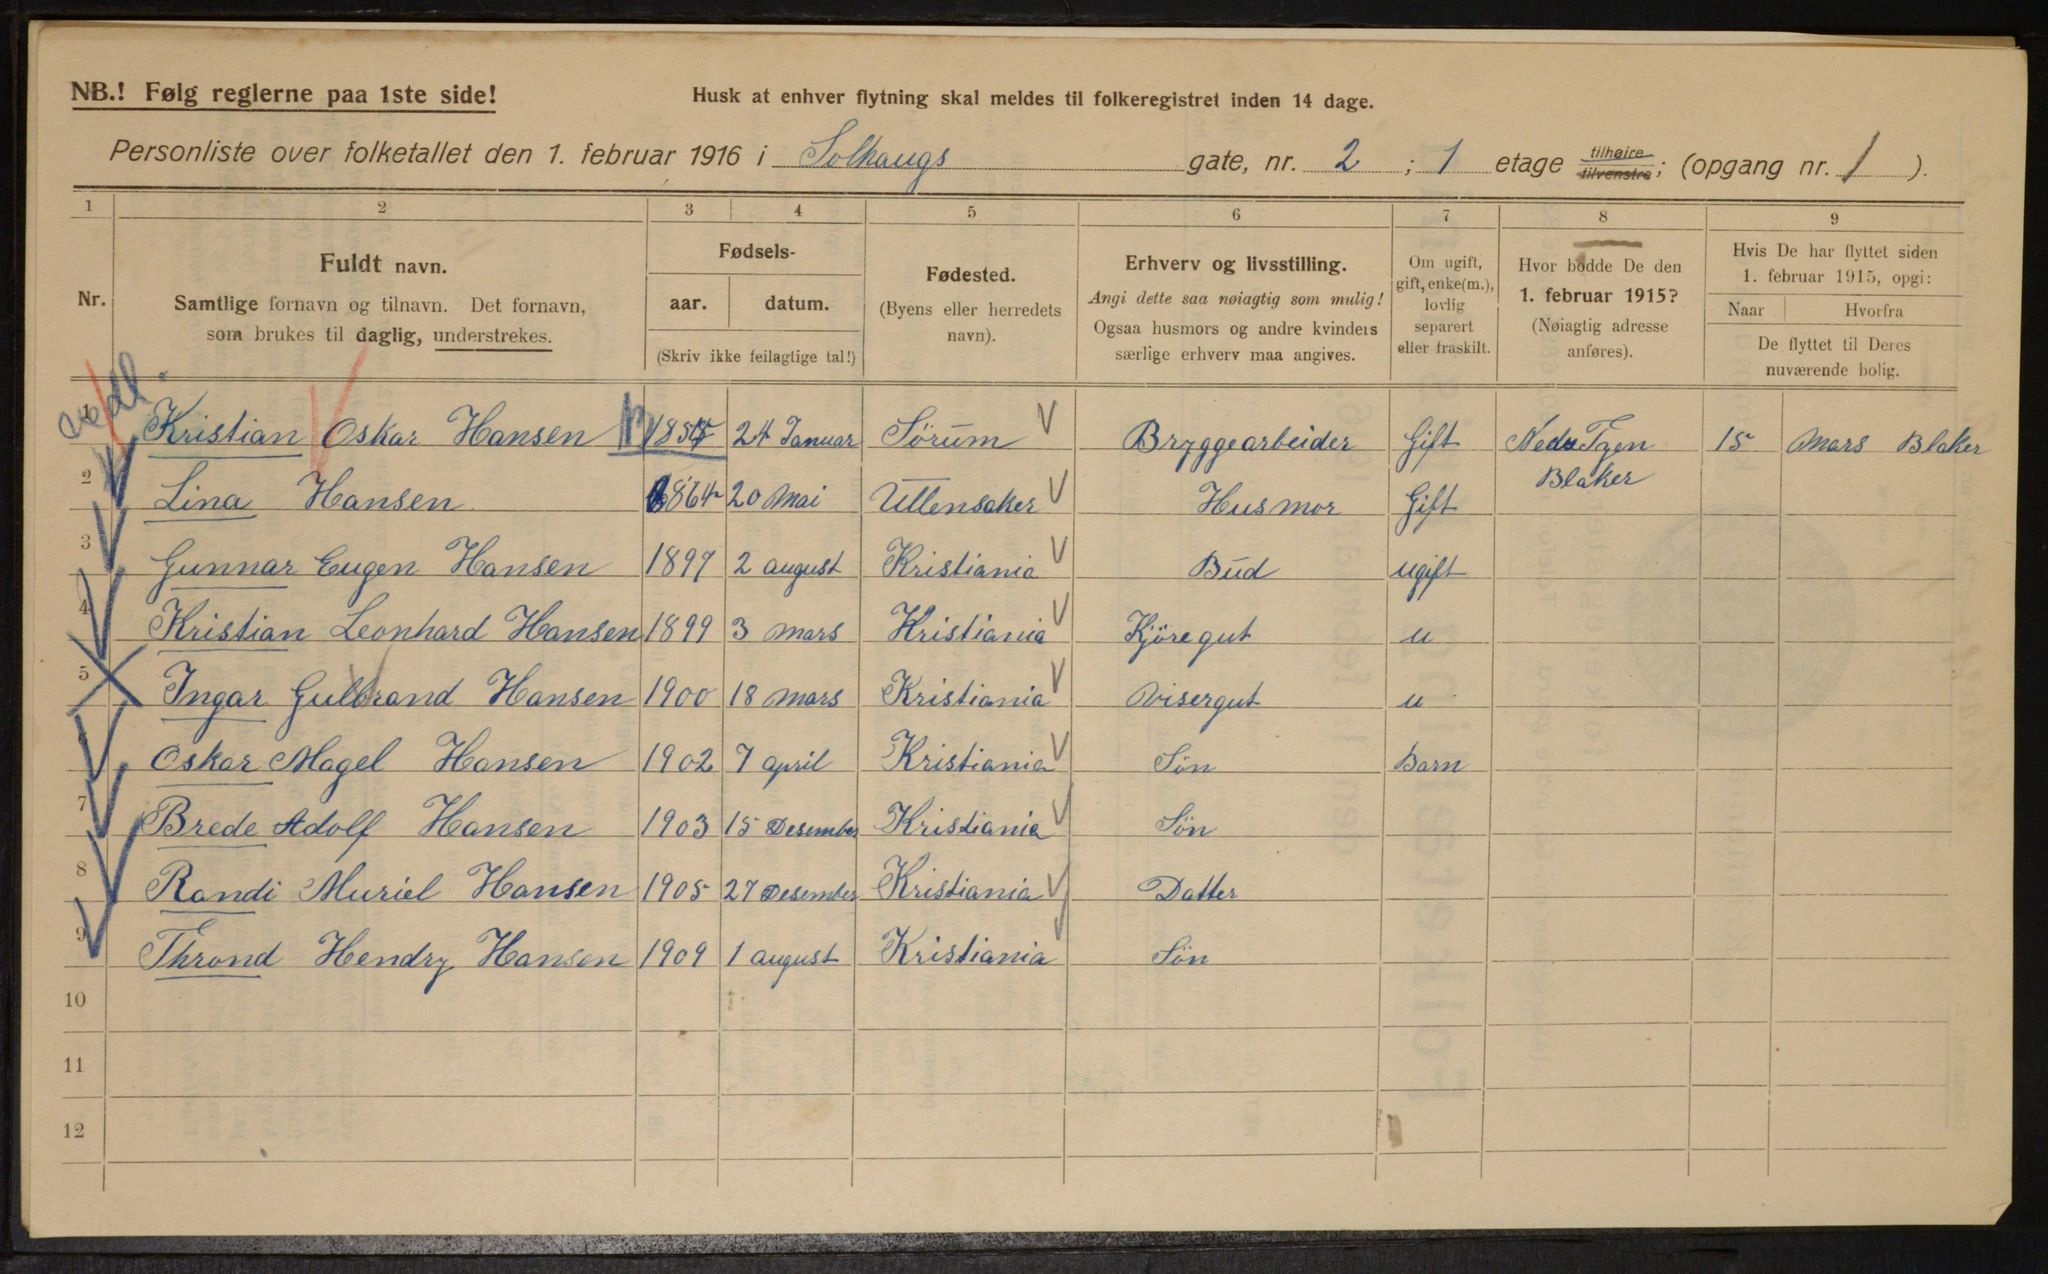 NB.! Følg reglerne paa 1ste side!
Husk at enhver flytning skal meldes til folkeregistret inden 14 dage.
Personliste over folketallet den 1. februar 1916 i Solhaugs gate, nr. 2 ; 1 etage tilhøire tilvenstre; (opgang nr. 1 ).
1 2 3 4 5 6 7 8 9
Nr.
Fuldt navn.
Samtlige fornavn og tilnavn. Det fornavn,
som brukes til daglig, understrekes.
Fødsels-
aar. datum.
(Skriv ikke feilagtige tal!)
Fødested.
(Byens eller herredets
navn).
Erhverv og livsstilling.
Angi dette saa nøiagtig som mulig!
Ogsaa husmors og andre kvinders
særlige erhverv maa angives.
Om ugift,
gift, enke(m.),
lovlig
separert
eller fraskilt.
Hvor bodde De den
1. februar 1915?
(Nøiagtig adresse
anføres).
Hvis De har flyttet siden
1. februar 1915, opgi:
Naar Hvorfra
De flyttet til Deres
nuværende bolig.
1 Kristian Oskar Hansen 24 Januar Sørum Bryggearbeider Gift 15 Mars Blaker
Blaker
2 Lina Hansen 1864 20 Mai Ullensaker Husmor Gift
3 Gunnar Eugen Hansen 1897 2 august Kristiania Bud ugift
4 Kristian Leonhard Hansen 1899 3 mars Kristiania Kjöregut u
5 Ingar Gulbrand Hansen 1900 18 Mars Kristiania Visergut u
6 Oskar Magel Hansen 1902 7 april Kristiania Sön Barn
7 Brede Adolf Hansen 1903 15 Desember Kristiania Sön
8 Randi Muriel Hansen 1905 27 Desember Kristiania Datter
9 Thrond Hendry Hansen 1909 1 august Kristiania Sön
10
11
12